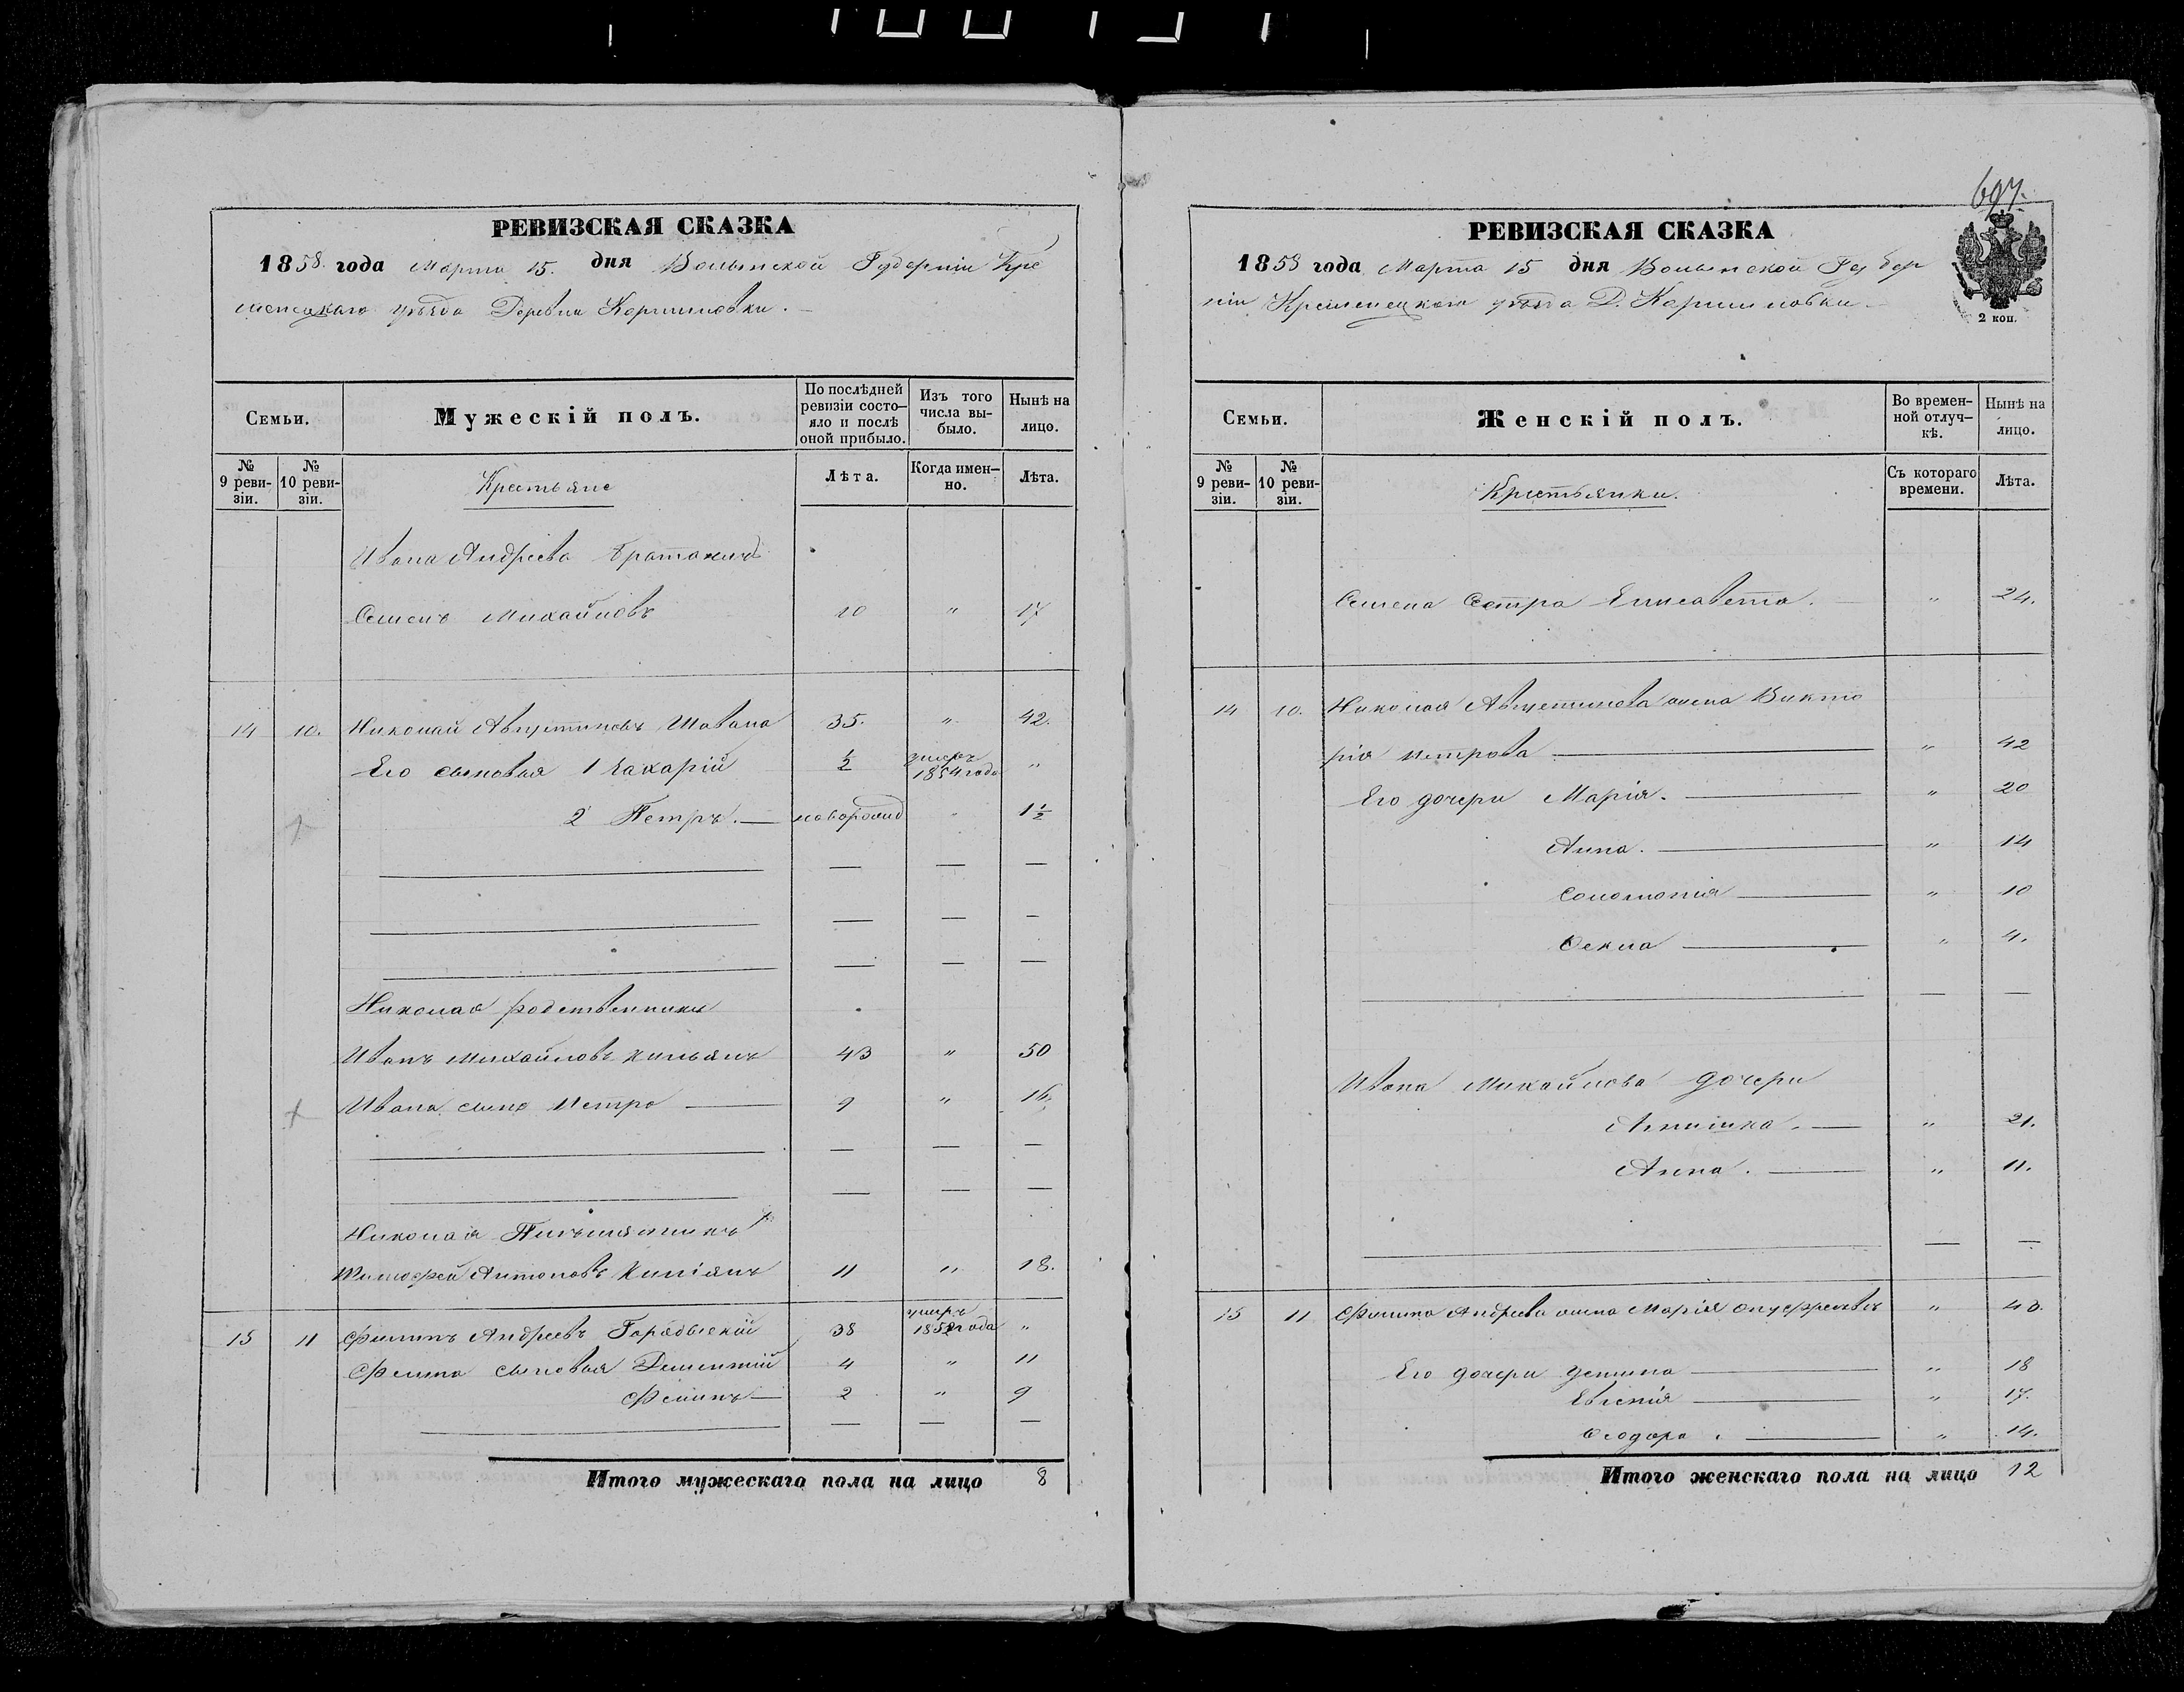 РЕВИЗСКАЯ СКАЗКА
1858 года Марта 15. дня Волынской Губерніи Кре
менецкаго уѣзда Деревни Коршиловки.
Семьи.
Мужескій полъ.
По послѣдней ревизіи состо-яло и послѣ оной прибыло.
Изъ того числа вы-было.
Нынѣ на лицо.
№ 9 реви-зіи.
№ 10 реви-зіи.
Крестьяне
Лѣта.
Когда имен-но.
Лѣта.
Ивана Андреева
Семенъ Михайловъ 10 " 17
14 10. Николай Августиновъ 35. " 42.
Его сыновья 1 Захарій ½ умеръ 1854 года "
2 Петръ. новорожд " 1½
Николая родственники
Иванъ Михайловъ Кильянъ 43 " 50
Ивана сынъ Петро 9 " 16.
Николая
Тимофей Антоновъ Киліянъ 11 " 18.
15 11 Филипъ Андреевъ 38 умеръ "
Филипа сыновья Дементій 4 " 11
Филипъ 2 " 9
Итого мужескаго пола на лицо 8
697.
РЕВИЗСКАЯ СКАЗКА
1858 года Марта 15 дня Волынской Губер
ніи Кременецкаго уѣзда Д. Коршиловки
2 коп.
Семьи.
Женскій полъ.
Во времен-ной отлуч-кѣ.
Нынѣ на лицо.
№ 9 реви-зіи.
№ 10 реви-зіи.
Крестьянки.
Съ котораго времени.
Лѣта.
Семена Сестра Елисавета. " 24.
14 10. Николая Августинова жена Викто
рія Петрова " 42
Его дочери Марія. " 20
Анна. " 14
Соломонія " 10
Фекла " 4.
Ивана Михайлова дочери
" 21.
Анна. " 11.
15 11 Филипа Андреева жена Марія "
Его дочери " 18
Евгенія " 17.
Феодора. " 14.
Итого женскаго пола на лицо 12